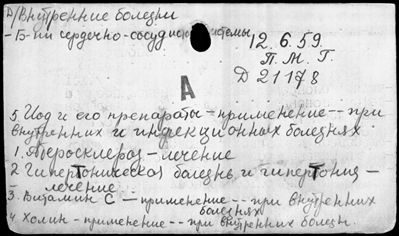 Д/Внутренние болезни
- Б-ни сердечно-сосудистой системы
12.6.59.
П. М. Г.
Д 21178
А
5 Иод и его препараты - применение -- при
внутренних и инфекционных болезнях
1. Атеросклероз - лечение
2 Гипертоническая болезнь и гипертония -
лечение
3. Витамин С - применение -- при внутренних
болезнях
4. Холин - применение -- при внутренних болезн.